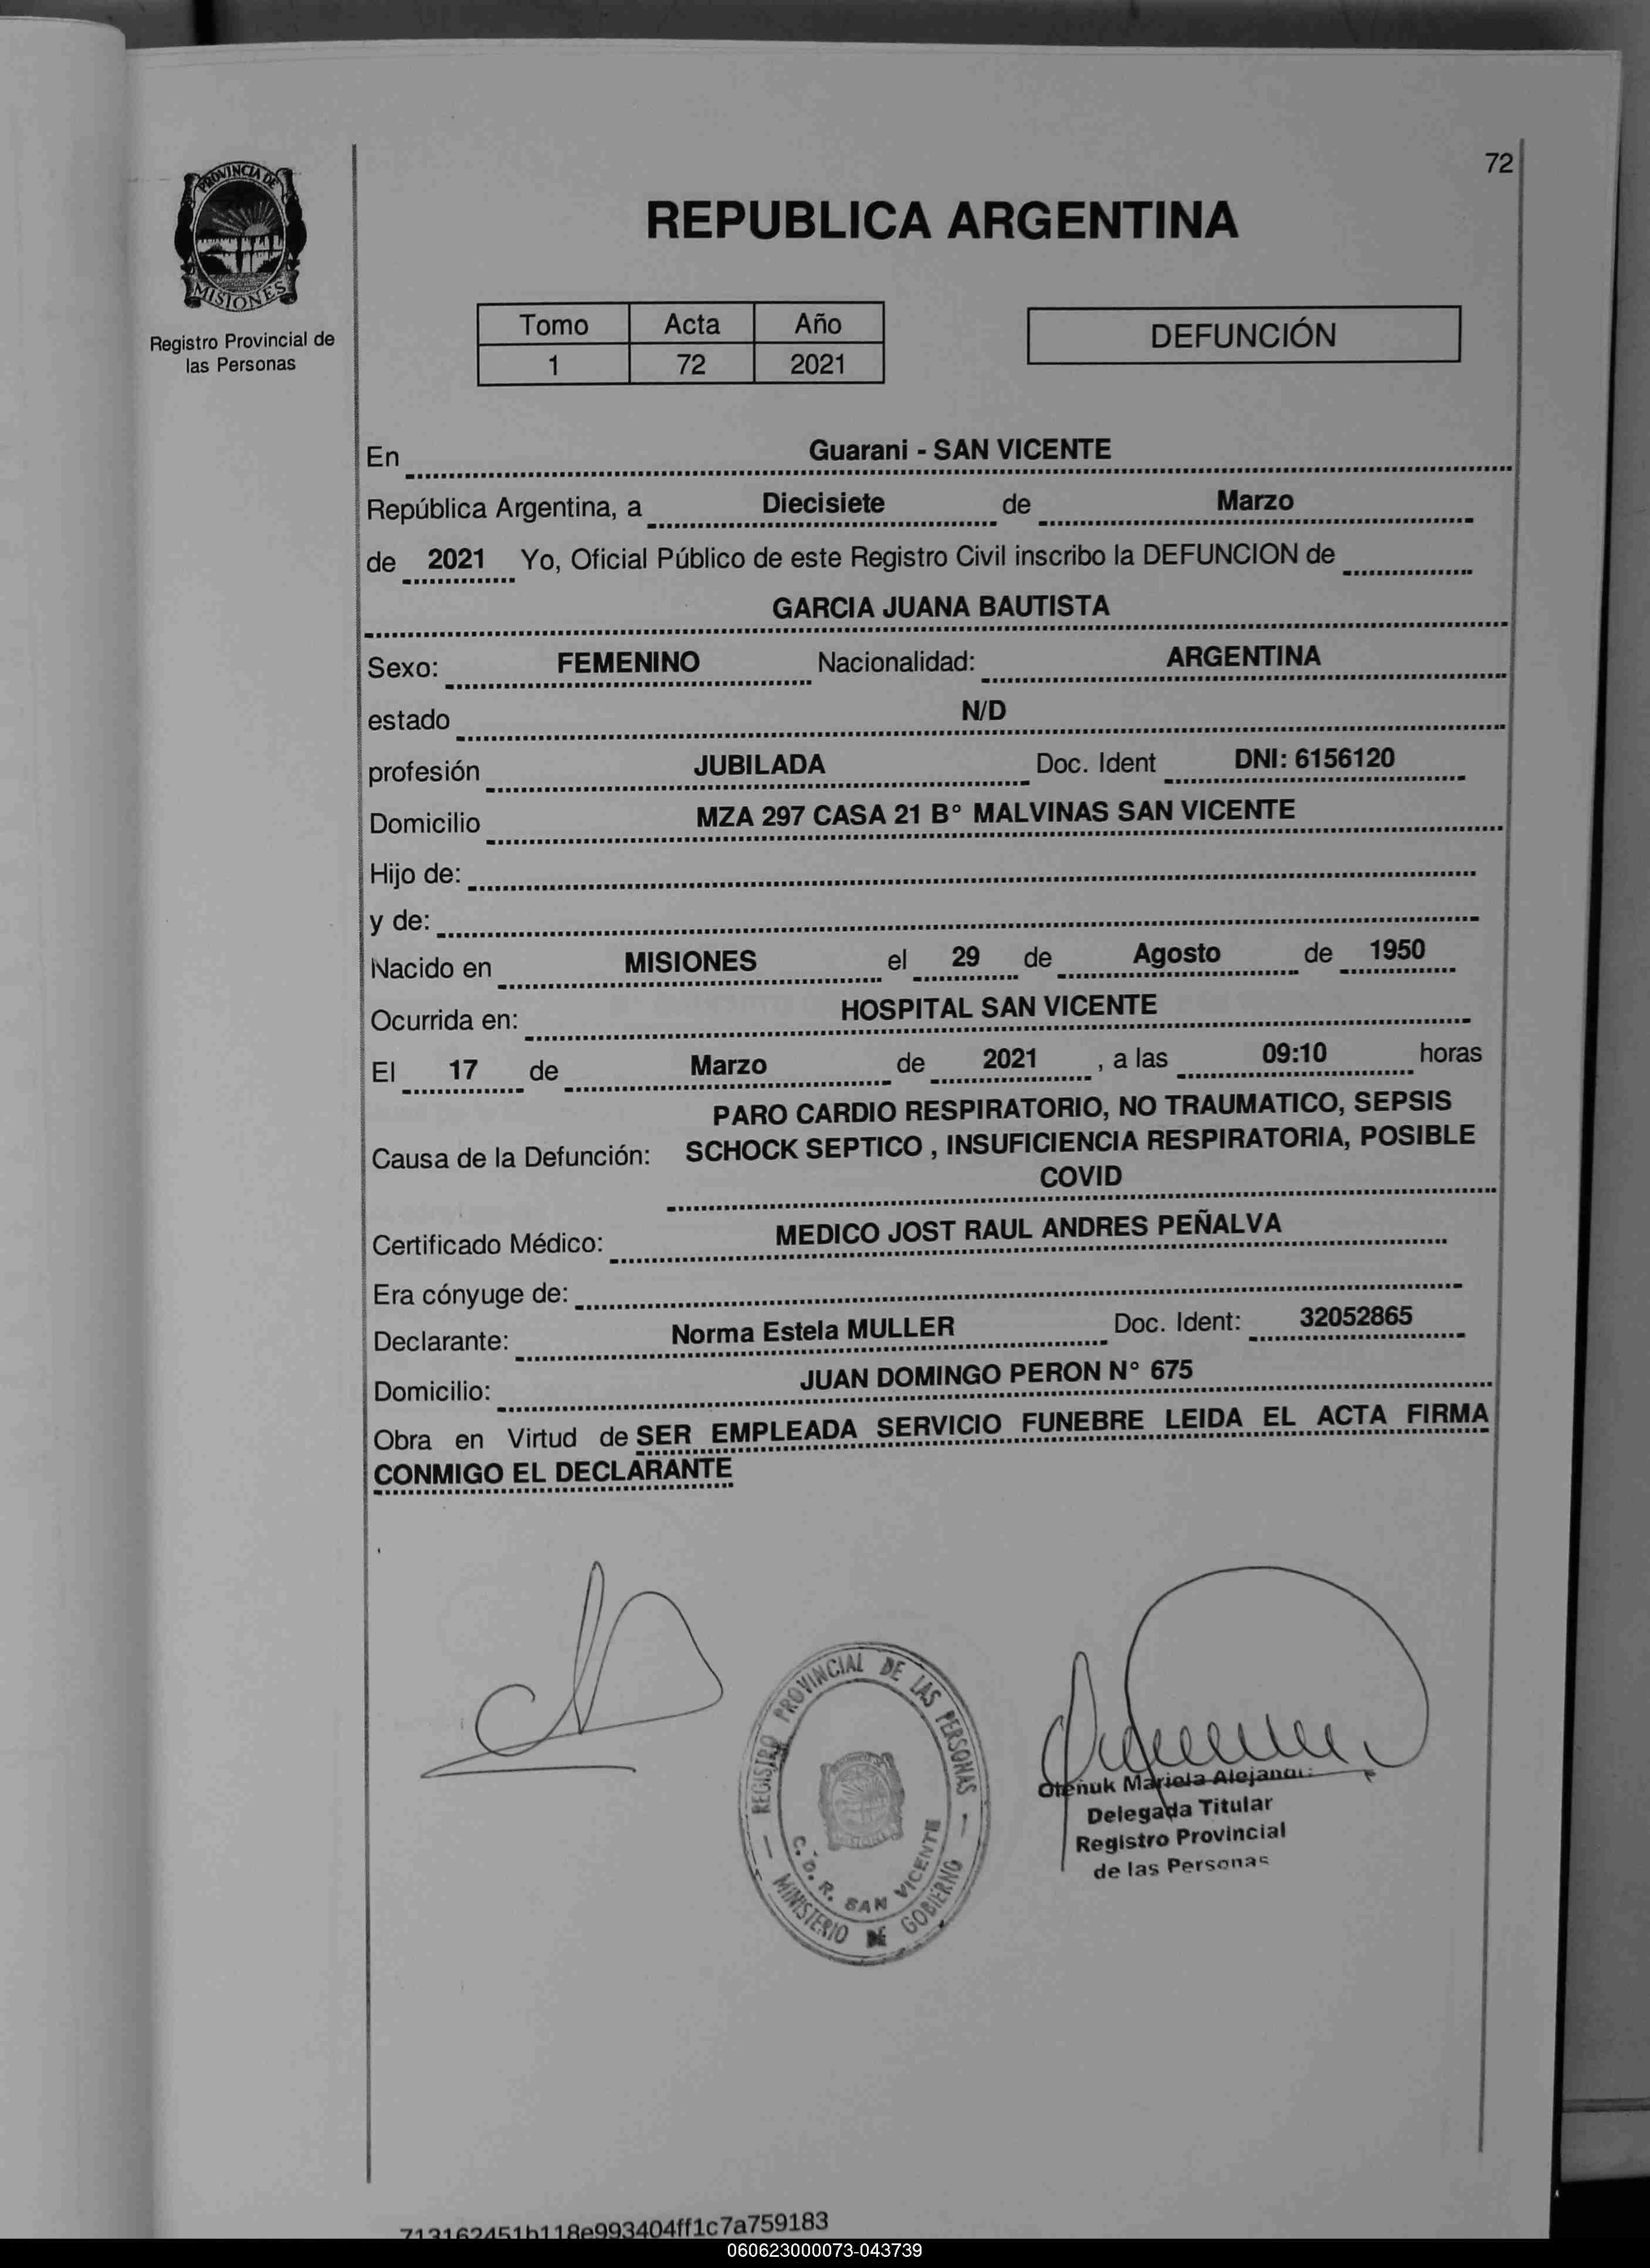 72
PROVINCIA DE
MISIONES
Registro Provincial de
las Personas
REPUBLICA ARGENTINA
Tomo Acta Año
1 72 2021
DEFUNCIÓN
En Guarani - SAN VICENTE
República Argentina, a Diecisiete de Marzo
de 2021 Yo, Oficial Público de este Registro Civil inscribo la DEFUNCION de
GARCIA JUANA BAUTISTA
Sexo: FEMENINO Nacionalidad: ARGENTINA
estado N/D
profesión JUBILADA Doc. Ident DNI: 6156120
Domicilio MZA 297 CASA 21 B° MALVINAS SAN VICENTE
Hijo de:
y de:
Nacido en MISIONES el 29 de Agosto de 1950
Ocurrida en: HOSPITAL SAN VICENTE
El 17 de Marzo de 2021 , a las 09:10 horas
PARO CARDIO RESPIRATORIO, NO TRAUMATICO, SEPSIS
Causa de la Defunción: SCHOCK SEPTICO , INSUFICIENCIA RESPIRATORIA, POSIBLE
COVID
Certificado Médico: MEDICO JOST RAUL ANDRES PEÑALVA
Era cónyuge de:
Declarante: Norma Estela MULLER Doc. Ident: 32052865
Domicilio: JUAN DOMINGO PERON N° 675
Obra en Virtud de SER EMPLEADA SERVICIO FUNEBRE LEIDA EL ACTA FIRMA
CONMIGO EL DECLARANTE
REGISTRO PROVINCIAL DE LAS PERSONAS
C. D. R. SAN VICENTE
MINISTERIO DE GOBIERNO
Mariela
Delegada Titular
Registro Provincial
de las Personas
713162451b118e993404ff1c7a759183
060623000073-043739